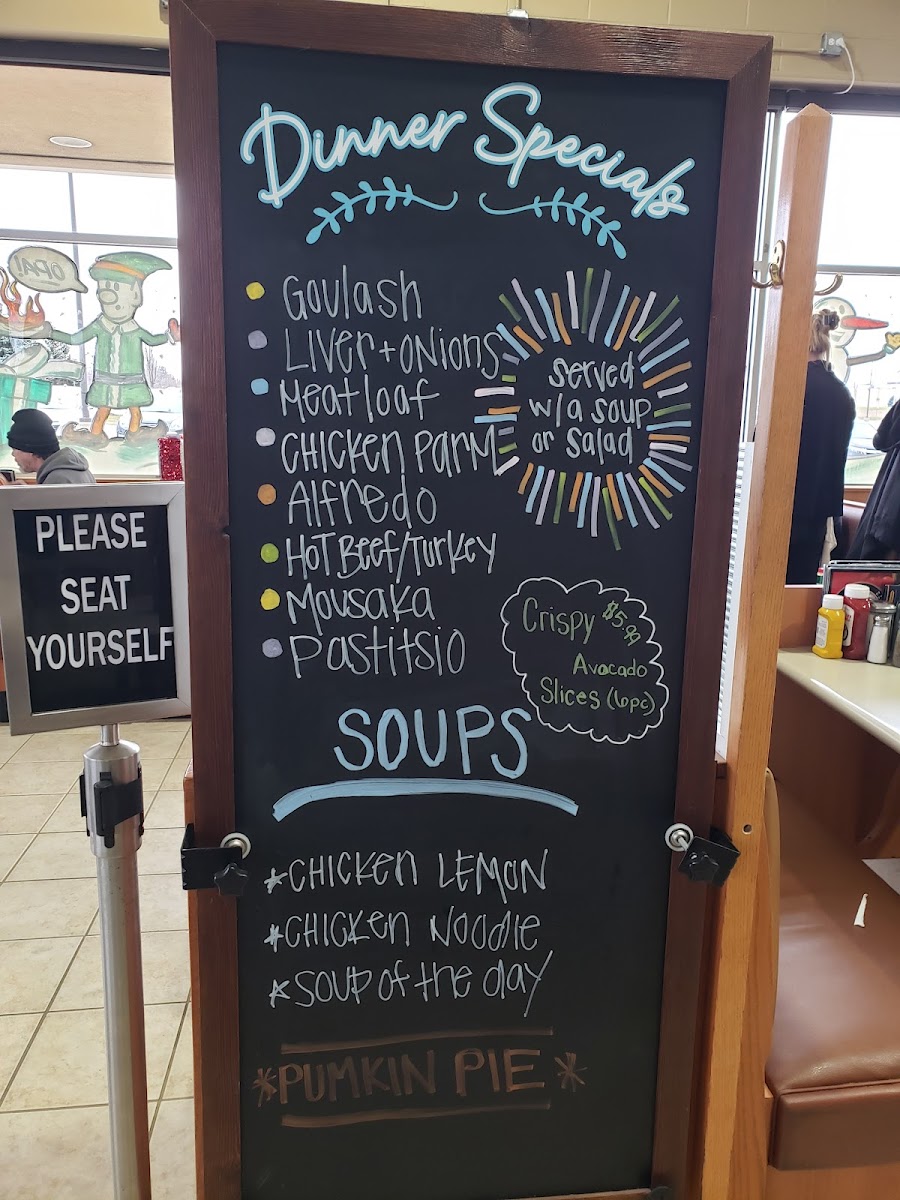 Dinner Specials
Goulash
Liver + Onions
Meatloaf
CHICKEN PARM
Alfredo
HOT Beef/Turkey
Mousaka
Pastitsio
served
w/a soup
or salad
Crispy $5.99
Avocado
Slices (6pc)
SOUPS
*CHICKEN LEMON
*CHICKEN NOODLE
*SOUP of the day
*PUMKIN PIE*
PLEASE
SEAT
YOURSELF
OPA!